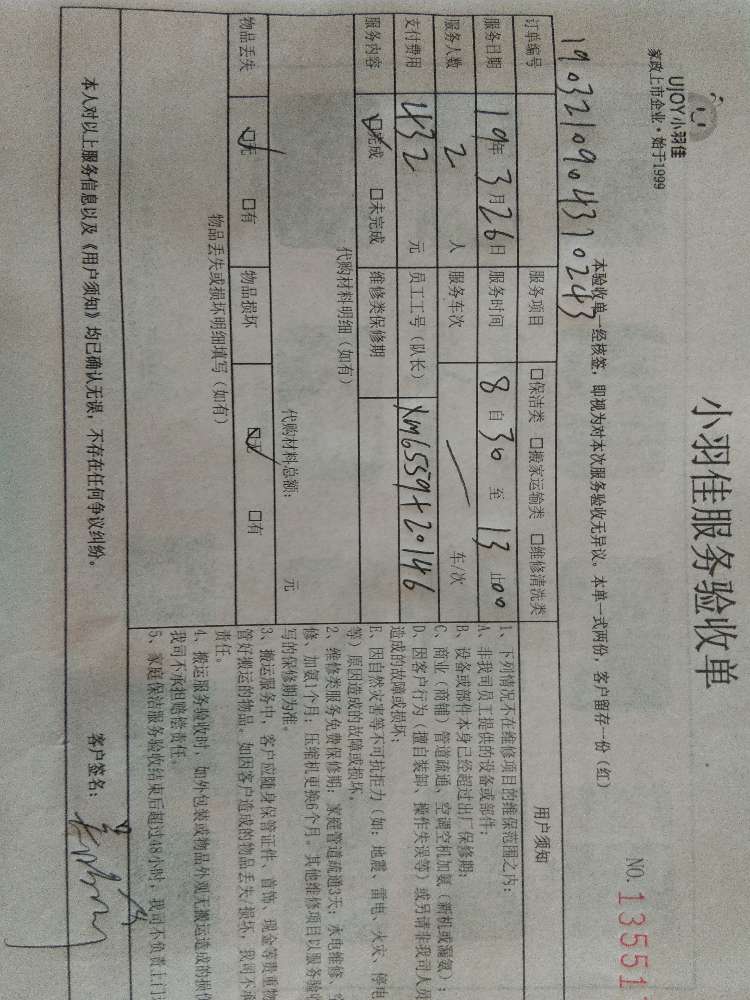 UJOY小羽佳
家政上市企业·始于1999
小羽佳服务验收单
NO: 13551
本验收单一经核签，即视为对本次服务验收无异议。本单一式两份，客户留存一份（红）
订单编号 190321090437 0243
服务项目 口保洁类 口搬家运输类 口维修清洗类
服务日期 19年3月26日 服务时间 8自30至13止00
服务人数 2人 服务车次 车/次
支付费用 432元 员工工号（队长） Xm6559+20146
服务内容 口完成 口未完成 维修类保修期
代购材料明细（如有）
代购材料总额： 元
物品丢失 口无 口有 物品损坏 口无 口有
物品丢失或损坏明细填写（如有）
用户须知
1、下列情况不在维修项目的维保范围之内：
A、非我司员工提供的设备或部件；
B、设备或部件本身已经超过出厂保修期；
C、商业（商铺）管道疏通、空调空机加氨（新机或漏氨）；
D、因客户行为（擅自装卸、操作失误等）或另请非我司人员
造成的故障或损坏；
E、因自然灾害等不可抗拒力（如：地震、雷电、火灾、停电
等）原因造成的故障或损坏。
2、维修类服务免费保修期：家庭管道疏通3天；水电维修、空
修、加氨1个月；压缩机更换6个月。其他维修项目以服务验收
写的保修期为准。
3、搬运服务中，客户应随身保管证件、首饰、现金等贵重物
管好搬运的物品。如因客户造成的物品丢失/损坏，我司不承
责任。
4、搬运服务验收时，如外包装或物品外观无搬运造成的损伤
我司不承担赔偿责任。
5、家庭保洁服务验收结束后超过48小时，我司不负责上门
本人对以上服务信息以及《用户须知》均已确认无误，不存在任何争议纠纷。
客户签名：